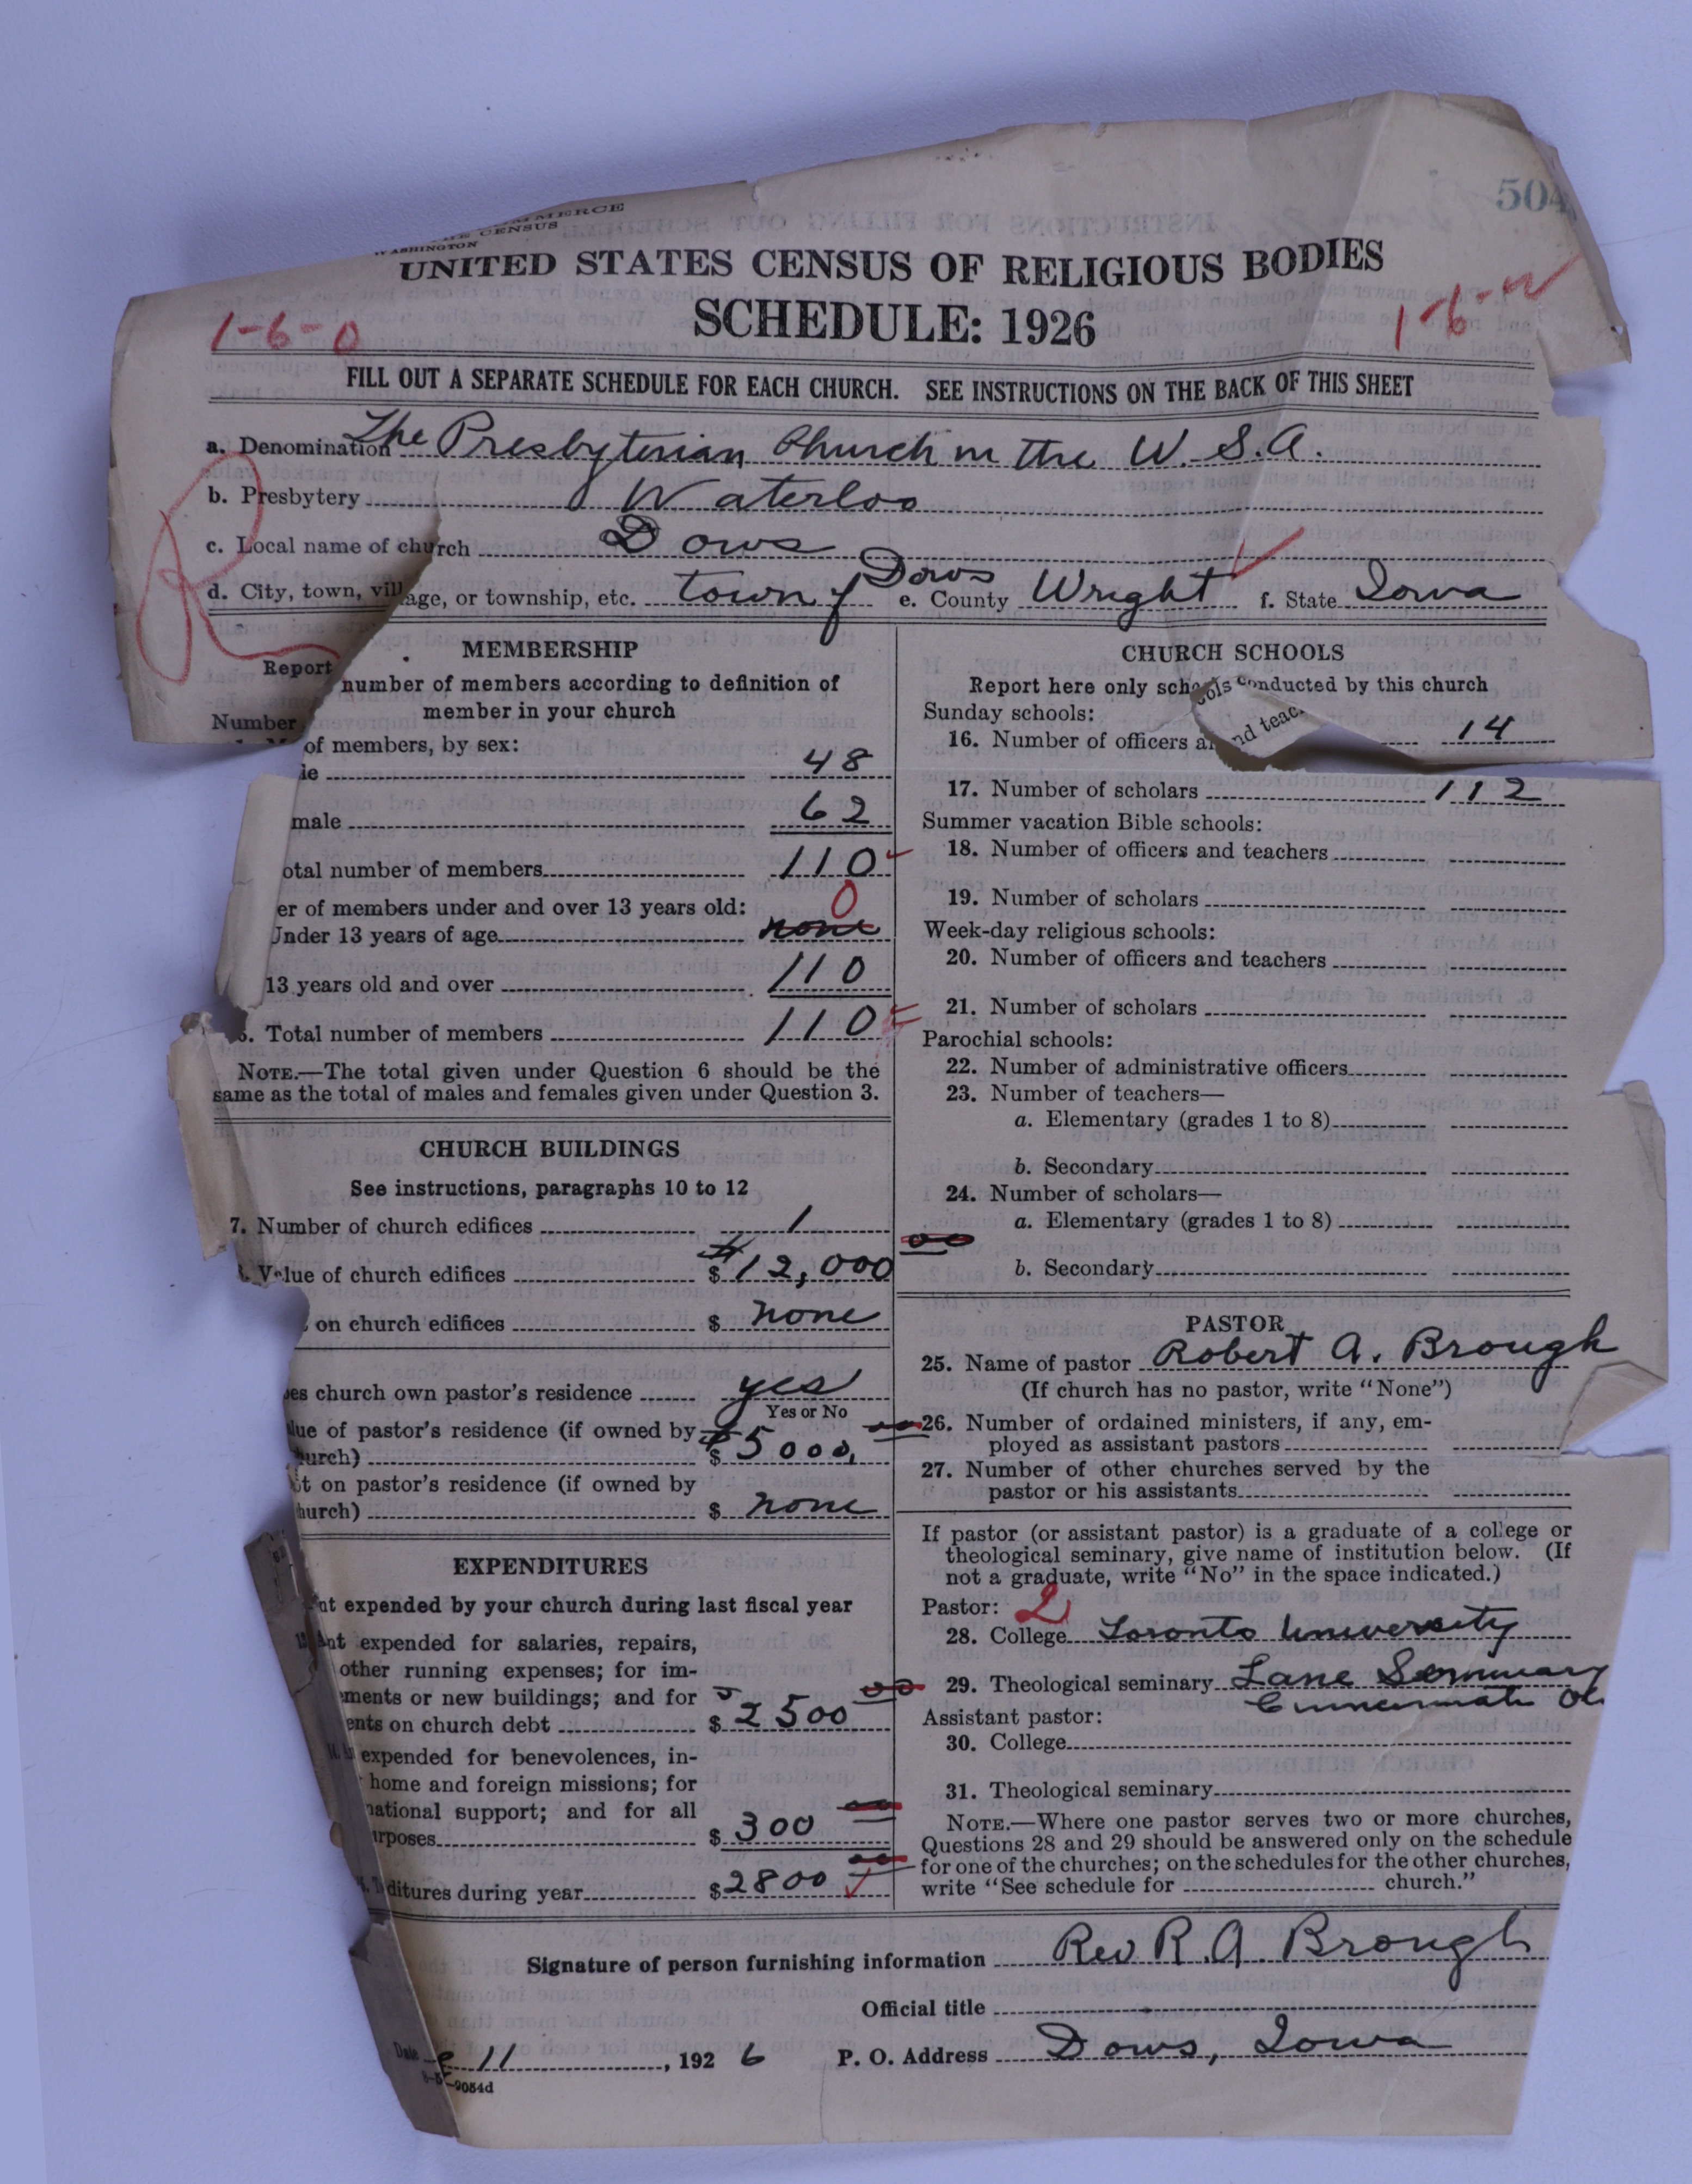 MMERCE
THE CENSUS
WASHINGTON
504
UNITED STATES CENSUS OF RELIGIOUS BODIES
SCHEDULE: 1926
1-6-0
FILL OUT A SEPARATE SCHEDULE FOR EACH CHURCH. SEE INSTRUCTIONS ON THE BACK OF THIS SHEET
a. Denomination The Presbyterian Church in the U.S.A.
b. Presbytery Waterloo
c. Local name of church Dows
d. City, town, village, or township, etc. town of Dows e. County Wright f. State Iowa
R
MEMBERSHIP
Report number of members according to definition of
member in your church
Number of members, by sex:
le 48
male 62
otal number of members 110
er of members under and over 13 years old:
Under 13 years of age none 0
13 years old and over 110
6. Total number of members 110
NOTE.—The total given under Question 6 should be the
same as the total of males and females given under Question 3.
CHURCH BUILDINGS
See instructions, paragraphs 10 to 12
7. Number of church edifices 1
Value of church edifices $ 12,000
on church edifices $ none
es church own pastor's residence yes
Yes or No
lue of pastor's residence (if owned by
urch) $ 5000
t on pastor's residence (if owned by
hurch) $ none
EXPENDITURES
nt expended by your church during last fiscal year
nt expended for salaries, repairs,
other running expenses; for im-
ments or new buildings; and for
ents on church debt $ 2500
expended for benevolences, in-
home and foreign missions; for
national support; and for all
urposes $ 300
ditures during year $ 2800
CHURCH SCHOOLS
Report here only schools conducted by this church
Sunday schools:
16. Number of officers and teac 14
17. Number of scholars 112
Summer vacation Bible schools:
18. Number of officers and teachers
19. Number of scholars
Week-day religious schools:
20. Number of officers and teachers
21. Number of scholars
Parochial schools:
22. Number of administrative officers
23. Number of teachers—
a. Elementary (grades 1 to 8)
b. Secondary
24. Number of scholars—
a. Elementary (grades 1 to 8)
b. Secondary
PASTOR
25. Name of pastor Robert A. Brough
(If church has no pastor, write "None")
26. Number of ordained ministers, if any, em-
ployed as assistant pastors
27. Number of other churches served by the
pastor or his assistants
If pastor (or assistant pastor) is a graduate of a college or
theological seminary, give name of institution below. (If
not a graduate, write "No" in the space indicated.)
Pastor: 2
28. College Toronto University
29. Theological seminary Lane Seminary
Cincinnati Oh
Assistant pastor:
30. College
31. Theological seminary
NOTE.—Where one pastor serves two or more churches,
Questions 28 and 29 should be answered only on the schedule
for one of the churches; on the schedules for the other churches,
write "See schedule for church."
Signature of person furnishing information Rev R. A. Brough
Official title
Date e 11, 1926 P. O. Address Dows, Iowa
9054d